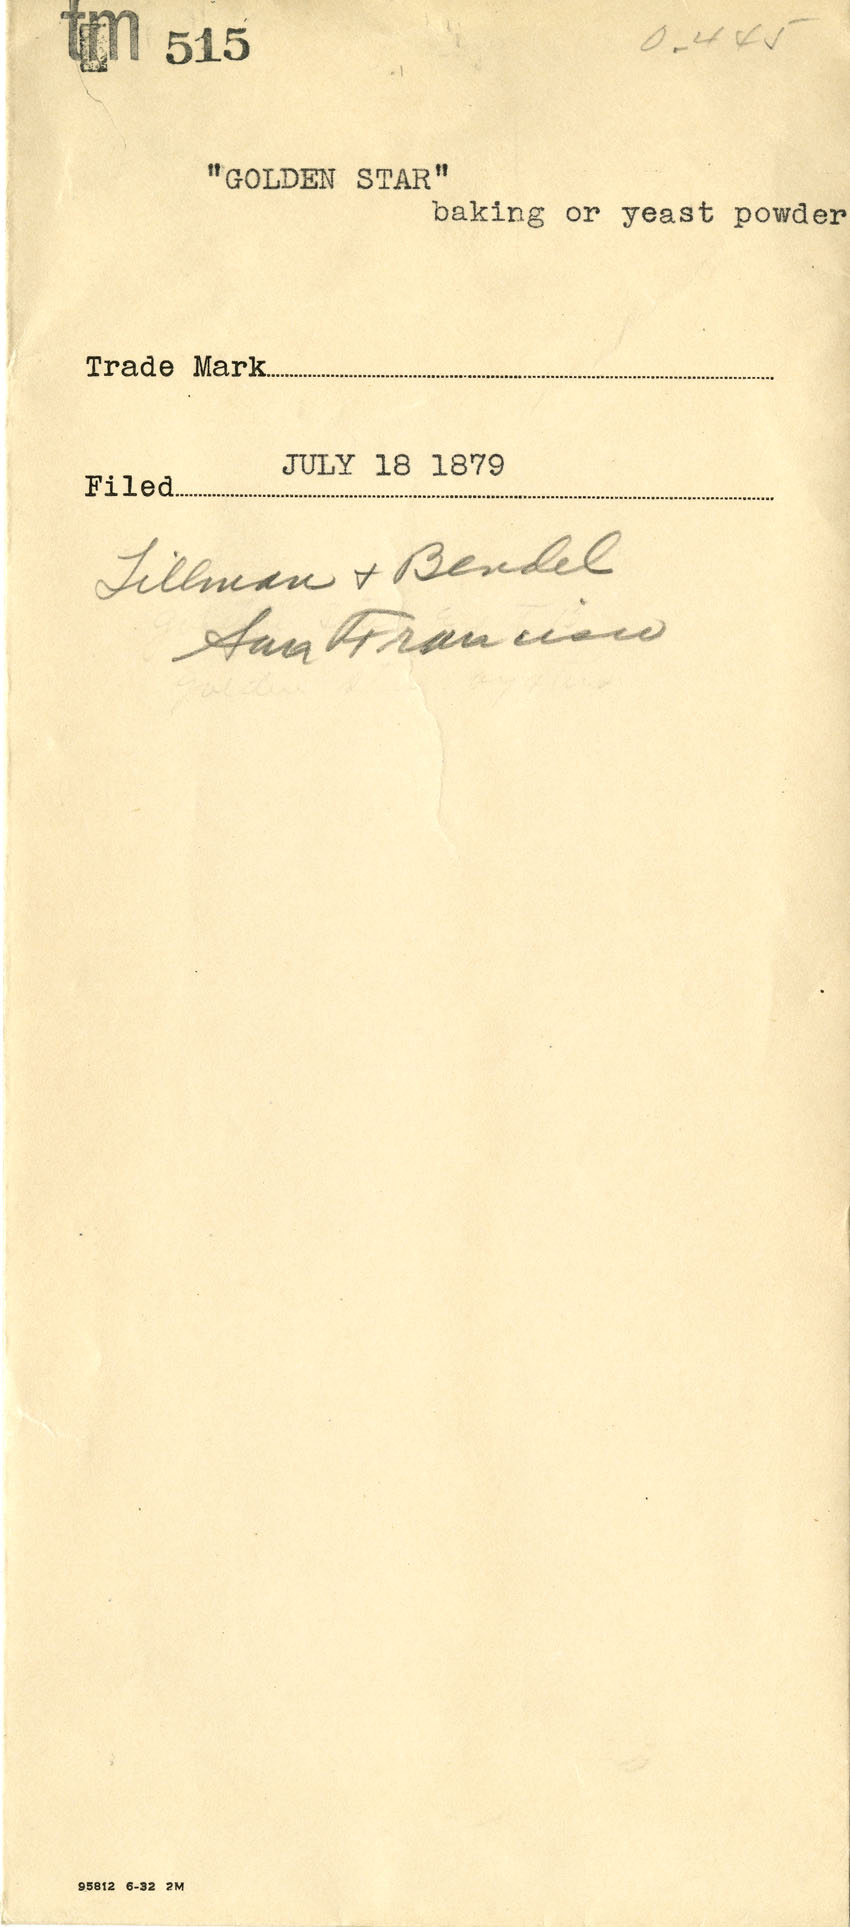 tm 515
0-445
"GOLDEN STAR"
baking or yeast powder
Trade Mark
JULY 18 1879
Filed
Tillman + Bendel
San Francisco
golden
95812 6-32 2M